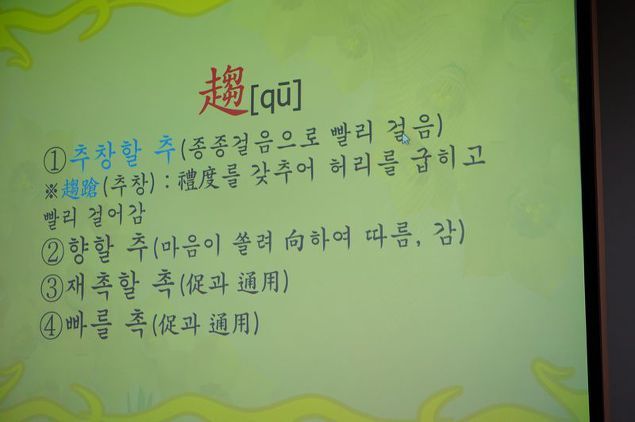 趨[qū]
①추창할 추(종종걸음으로 빨리 걸음)
※趨蹌(추창) : 禮度를 갖추어 허리를 굽히고
빨리 걸어감
②향할 추(마음이 쏠려 向하여 따름, 감)
③재촉할 촉(促과 通用)
④빠를 촉(促과 通用)